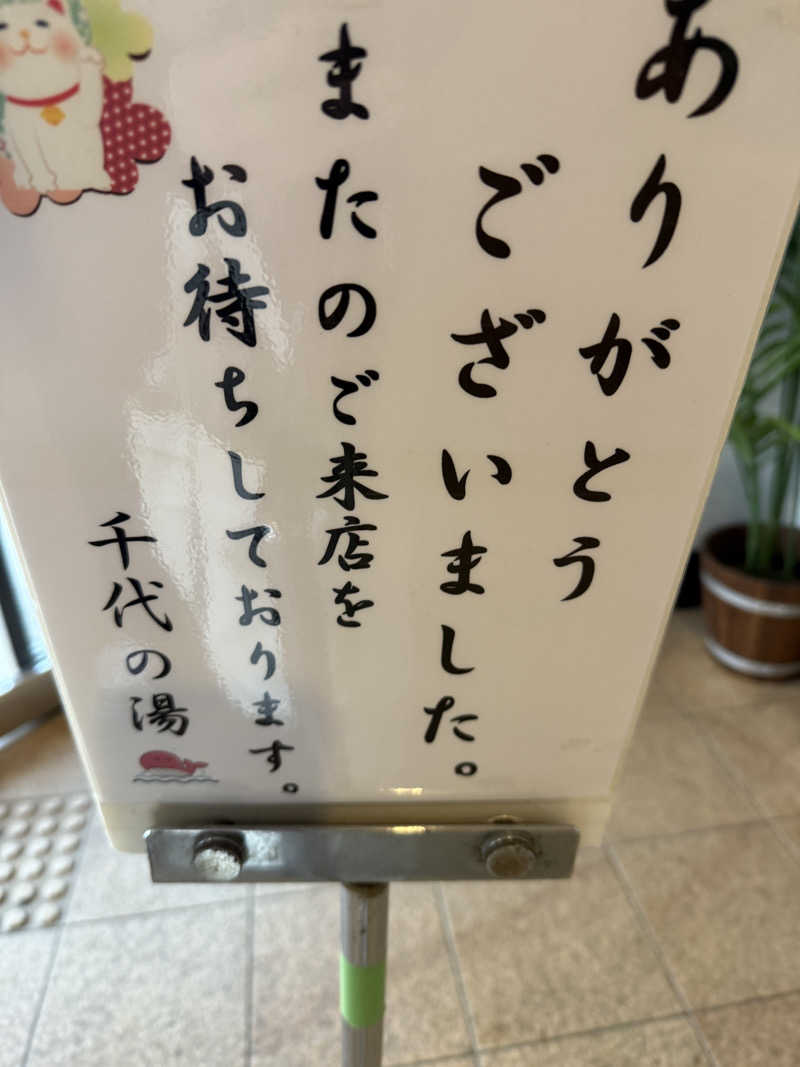 ありがとう
ございました。
またのご来店を
お待ちしております。
千代の湯